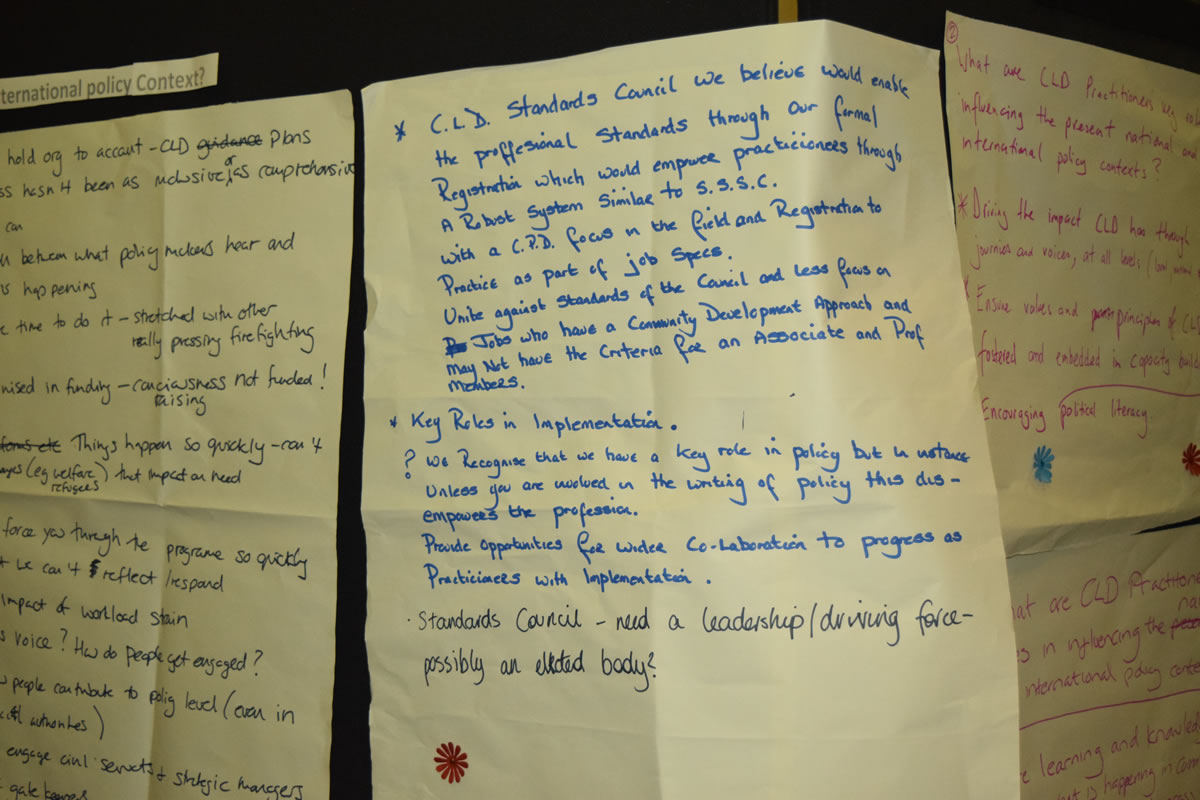 ternational policy Context?
hold org to accout - CLD guidance Plans
ss hasn't been as inclusive or as comprehensive
can
between what policy makers hear and
happening
time to do it - stretched with other
really pressing firefighting
nised in funding - conciousness not funded!
raising
Things happen so quickly - can't
(eg welfare) that impact on need
refugees
force you through the programe so quickly
we can't reflect / respond
impact of workload stain
voice? How do people get engaged?
people contribute to policy level (even in
authorities)
engage civil servants + strategic managers
gate keepers
* C.L.D. Standards Council we believe would enable
the proffesional Standards through our formal
Registration which would empower practicioners through
A Robust System Similar to S.S.S.C.
with a C.P.D. focus in the field and Registration to
Practice as part of job Specs.
Unite against Standards of the Council and less focus on
Jobs who have a Community Development Approach and
may Not have the Criteria for an Associate and Prof
members.
* Key Roles in Implementation.
? We Recognise that we have a key role in policy but in instance
Unless you are involved in the writing of policy this dis-
empowers the profession.
Provide opportunities for wider Co-Laboration to progress as
Practicioners with Implementation.
· Standards Council - need a leadership/driving force-
possibly an elected body?
2
What are CLD Practitioners key
influencing the present national and
international policy contexts?
* Driving the impact CLD has through
journies and voices, at all levels (local
* Ensure values and principles of CLD
fostered and embedded in capacity build
Encouraging political literacy.
hat are CLD Practitione
in influencing the
international policy conte
learning and knowled
is happening in comm